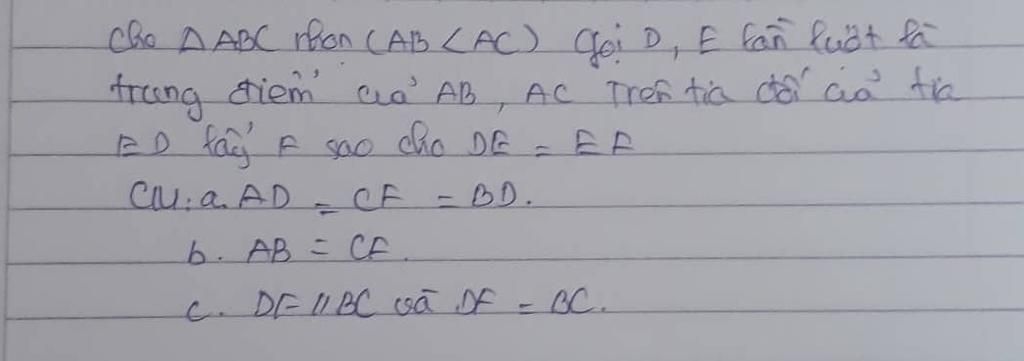 Cho △ABC nhọn (AB < AC) Gọi D, E lần lượt là
trung điểm của AB, AC Trên tia đối của tia
ED lấy F sao cho DE = EF
CM: a. AD = CF = BD.
b. AB = CF.
c. DF // BC và DF = BC.